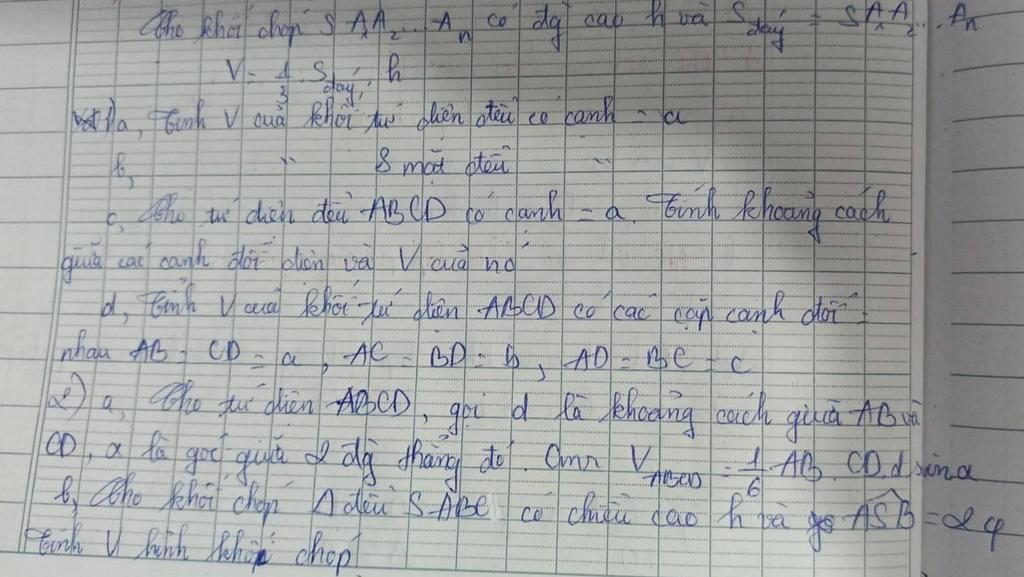 Cho khối chóp SA₁A₂...Aₙ có đg cao h và S đáy = SA₁A₂...Aₙ
V = 1/3 . S đáy . h
1) a, Tính V của khối tứ diện đều có cạnh = a
b, " 8 mặt đều "
c, Cho tứ diện đều ABCD có cạnh = a. Tính khoảng cách
giữa các cạnh đối diện và V của nó
d, Tính V của khối tứ diện ABCD có các cặp cạnh đối =
nhau AB = CD = a, AC = BD = b, AD = BC = c
2) a, Cho tứ diện ABCD, gọi d là khoảng cách giữa AB và
CD, α là góc giữa 2 đg thẳng đó. Cmr V_ABCD = 1/6 AB . CD . d sin α
b, Cho khối chóp Δ đều S.ABC có chiều cao h và góc ASB = 2φ
Tính V khối chóp